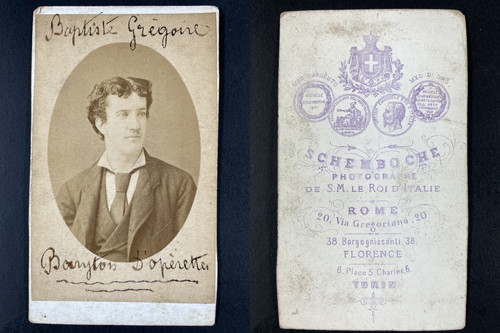 Baptiste Grégoire
Baryton D'opérettes
SCHEMBOCHE
PHOTOGRAPHE
DE S.M. LE ROI D'ITALIE
ROME
20, Via Gregoriana, 20
38, Borgognissanti, 38,
FLORENCE
6, Place S. Charles, 6
TURIN